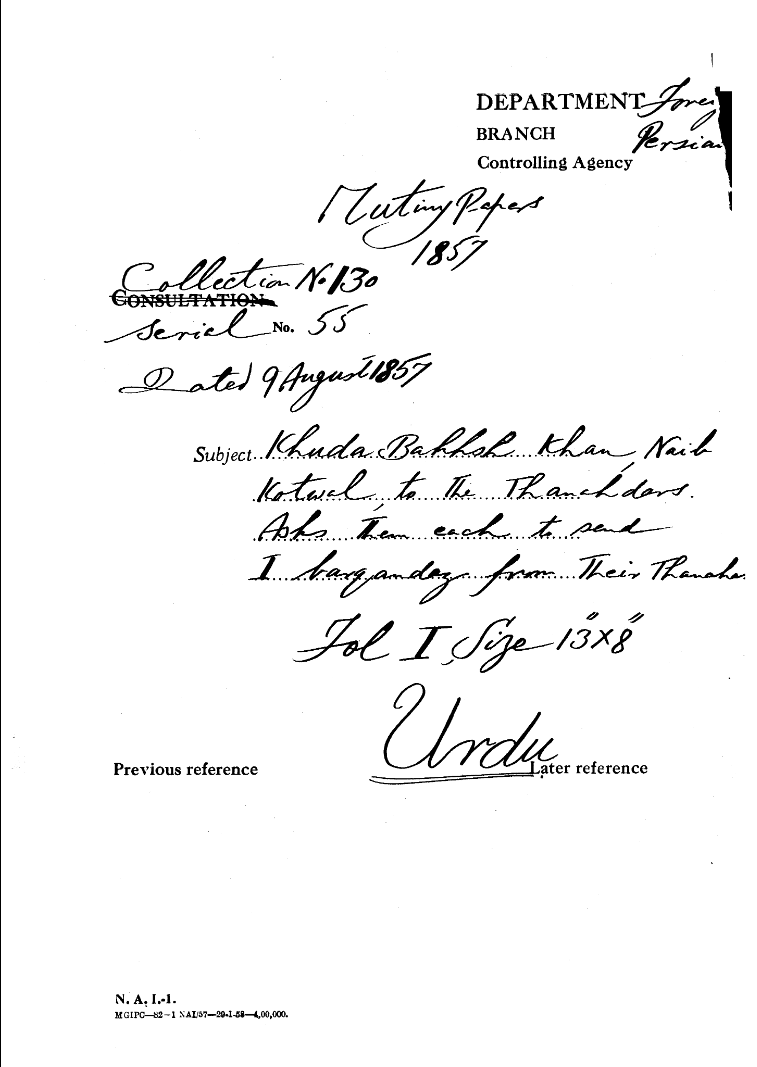 DEPARTMENT Foreig
BRANCH Persian
Controlling Agency
Mutiny Papers
1857
Collection No 130
CONSULTATION
Serial No. 55
Dated 9 August 1857
Subject Khuda Bakhsh Khan, Naib
Kotwal, to the Thanahdars.
Asks them each to send
I barqandaz from their Thanahs.
Fol I, Size 13"X8"
Urdu
Previous reference Later reference
N. A. I.-1.
MGIPC—S2—1 NAI/57—29-1-58—4,00,000.